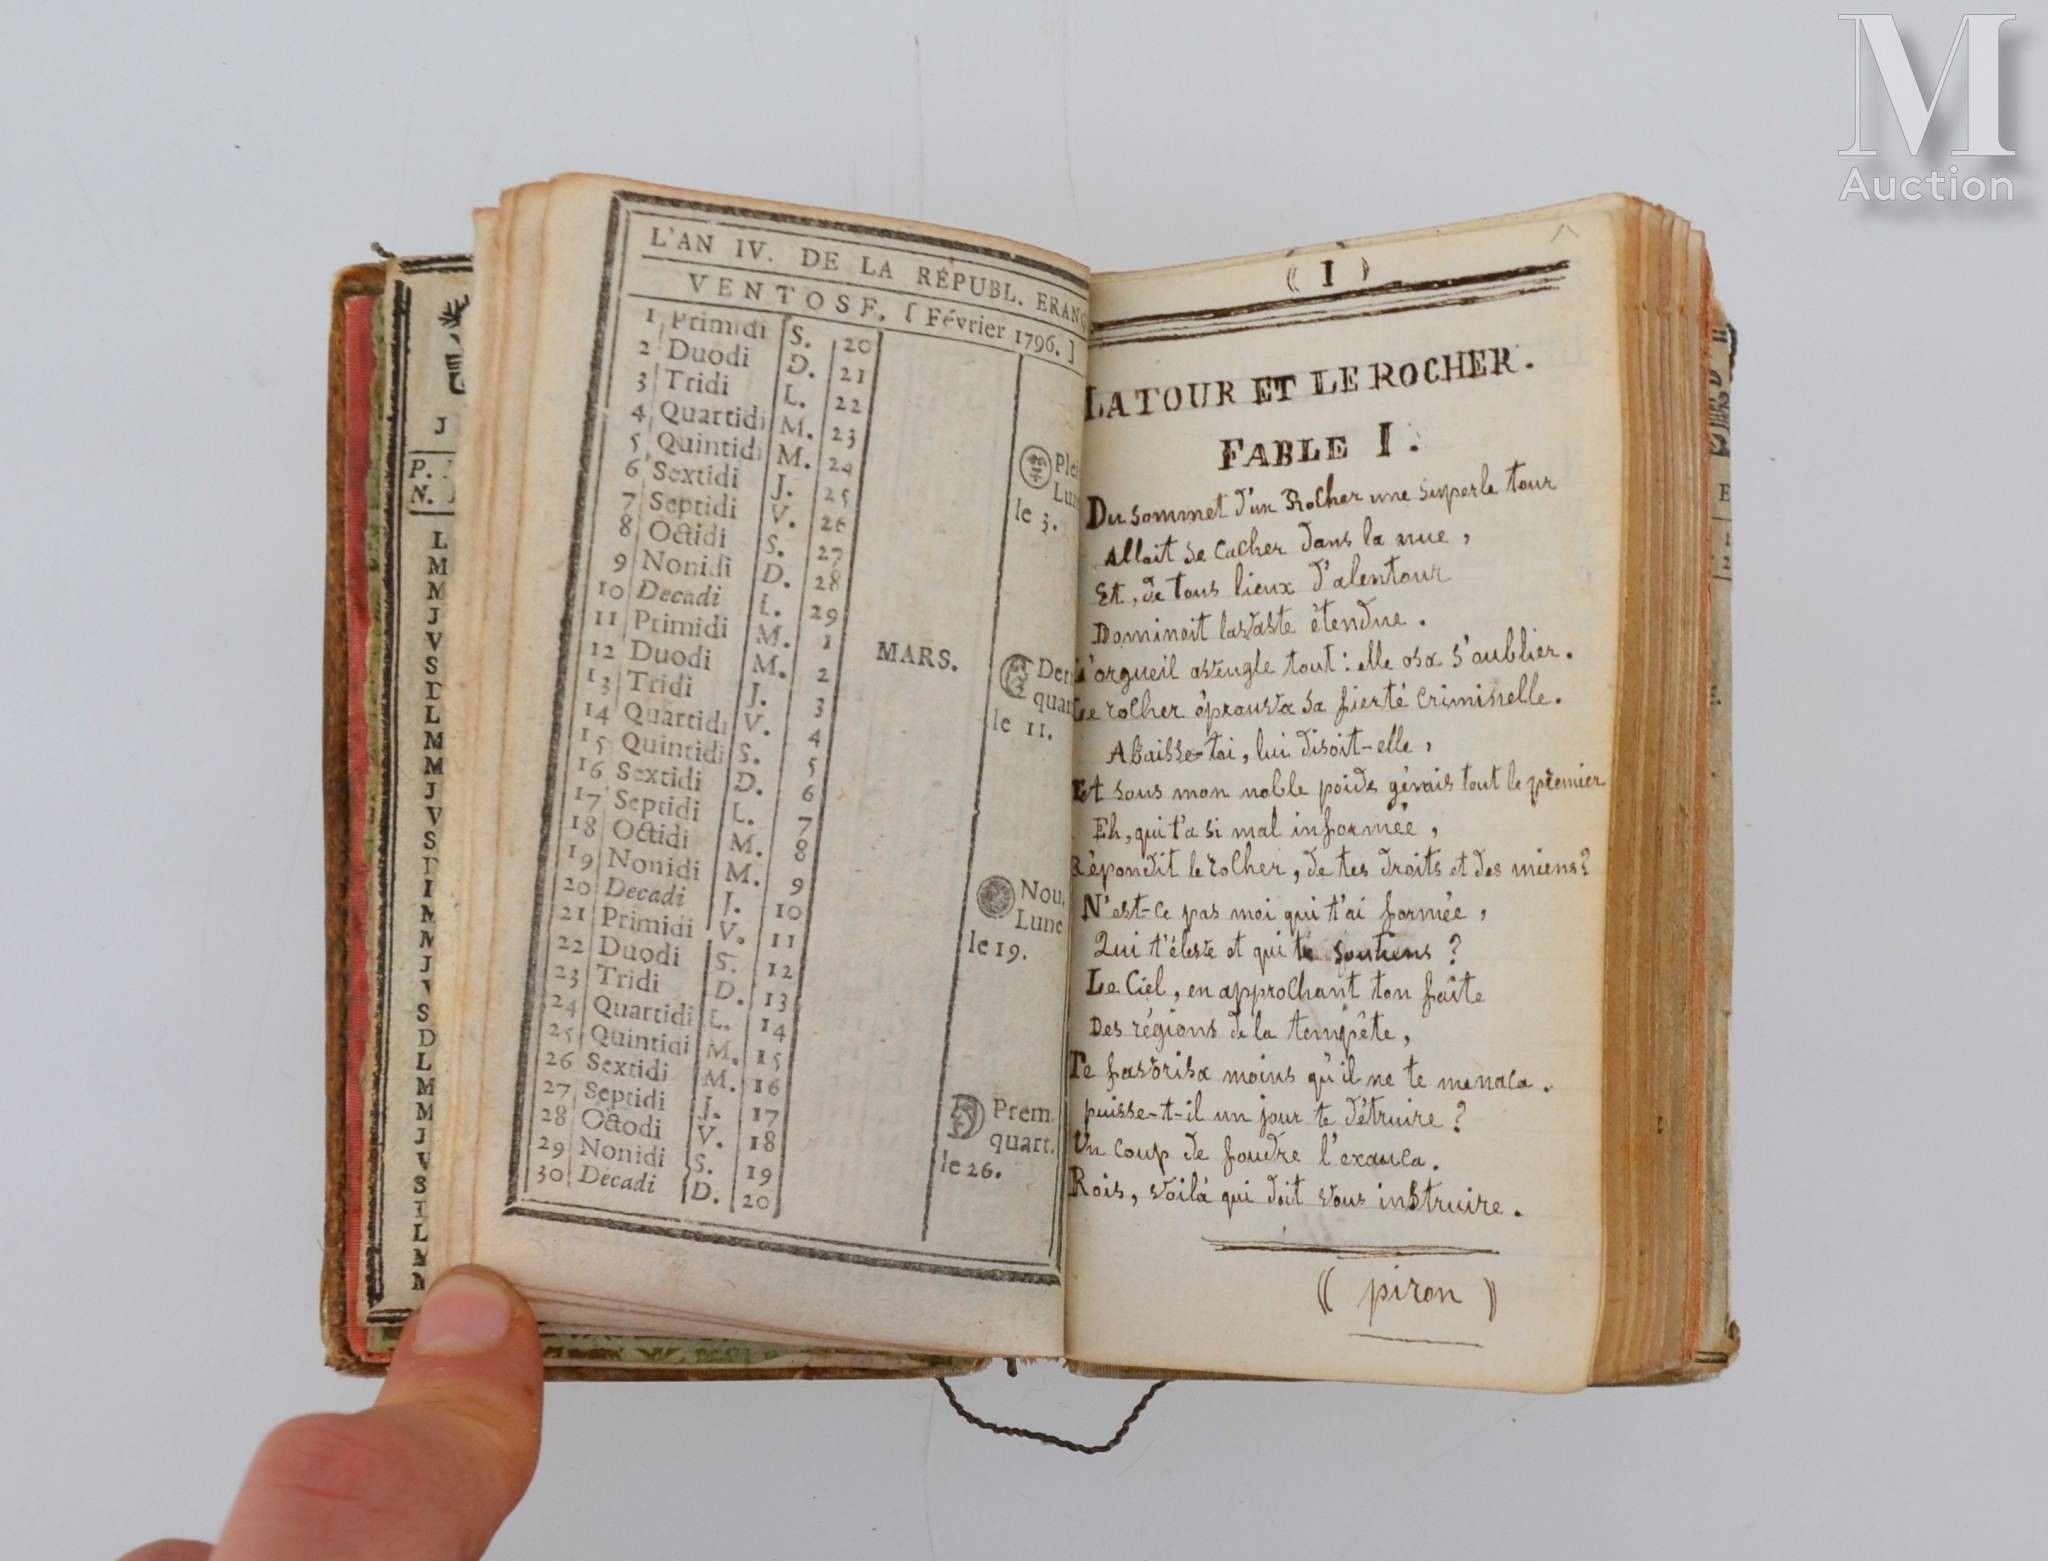 M
Auction
L'AN IV. DE LA RÉPUBL. ERANÇ
VENTOSE. [ Février 1796. ]
1 Primidi S. 20
2 Duodi D. 21
3 Tridi L. 22
4 Quartidi M. 23
5 Quintidi M. 24
6 Sextidi J. 25
7 Septidi V. 26
8 Octidi S. 27
9 Nonidi D. 28
10 Decadi L. 29
11 Primidi M. 1
12 Duodi M. 2
13 Tridi J. 3
14 Quartidi V. 4
15 Quintidi S. 5
16 Sextidi D. 6
17 Septidi L. 7
18 Octidi M. 8
19 Nonidi M. 9
20 Decadi J. 10
21 Primidi V. 11
22 Duodi S. 12
23 Tridi D. 13
24 Quartidi L. 14
25 Quintidi M. 15
26 Sextidi M. 16
27 Septidi J. 17
28 Octodi V. 18
29 Nonidi S. 19
30 Decadi D. 20
MARS.
Plei
Lun
le 3.
Der
quar
le 11.
Nou.
Lune
le 19.
Prem.
quart.
le 26.
(( I ))
LA TOUR ET LE ROCHER.
FABLE I.
Du sommet d'un Rocher une superbe tour
Alloit se cacher dans la nue,
Et, de tous lieux d'alentour
Dominoit la vaste étendue.
L'orgueil aveugle tout : elle osa s'oublier.
Le rocher éprouva sa fierté criminelle.
Abaisse-toi, lui disoit-elle,
Et sous mon noble poids gémis tout le premier
Eh, qui t'a si mal informée,
Répondit le rocher, de tes droits et des miens ?
N'est-ce pas moi qui t'ai formée,
Qui t'éleve et qui te soutiens ?
Le Ciel, en approchant ton faîte
Des régions de la tempête,
Te favorisa moins qu'il ne te menaca.
puisse-t-il un jour te détruire ?
Un coup de foudre l'exauca.
Rois, voilà qui doit vous instruire.
(( piron ))
J
P.
N.
L
M
M
J
V
S
D
L
M
M
J
V
S
D
L
M
M
J
V
S
D
L
M
M
J
V
S
D
L
M
M